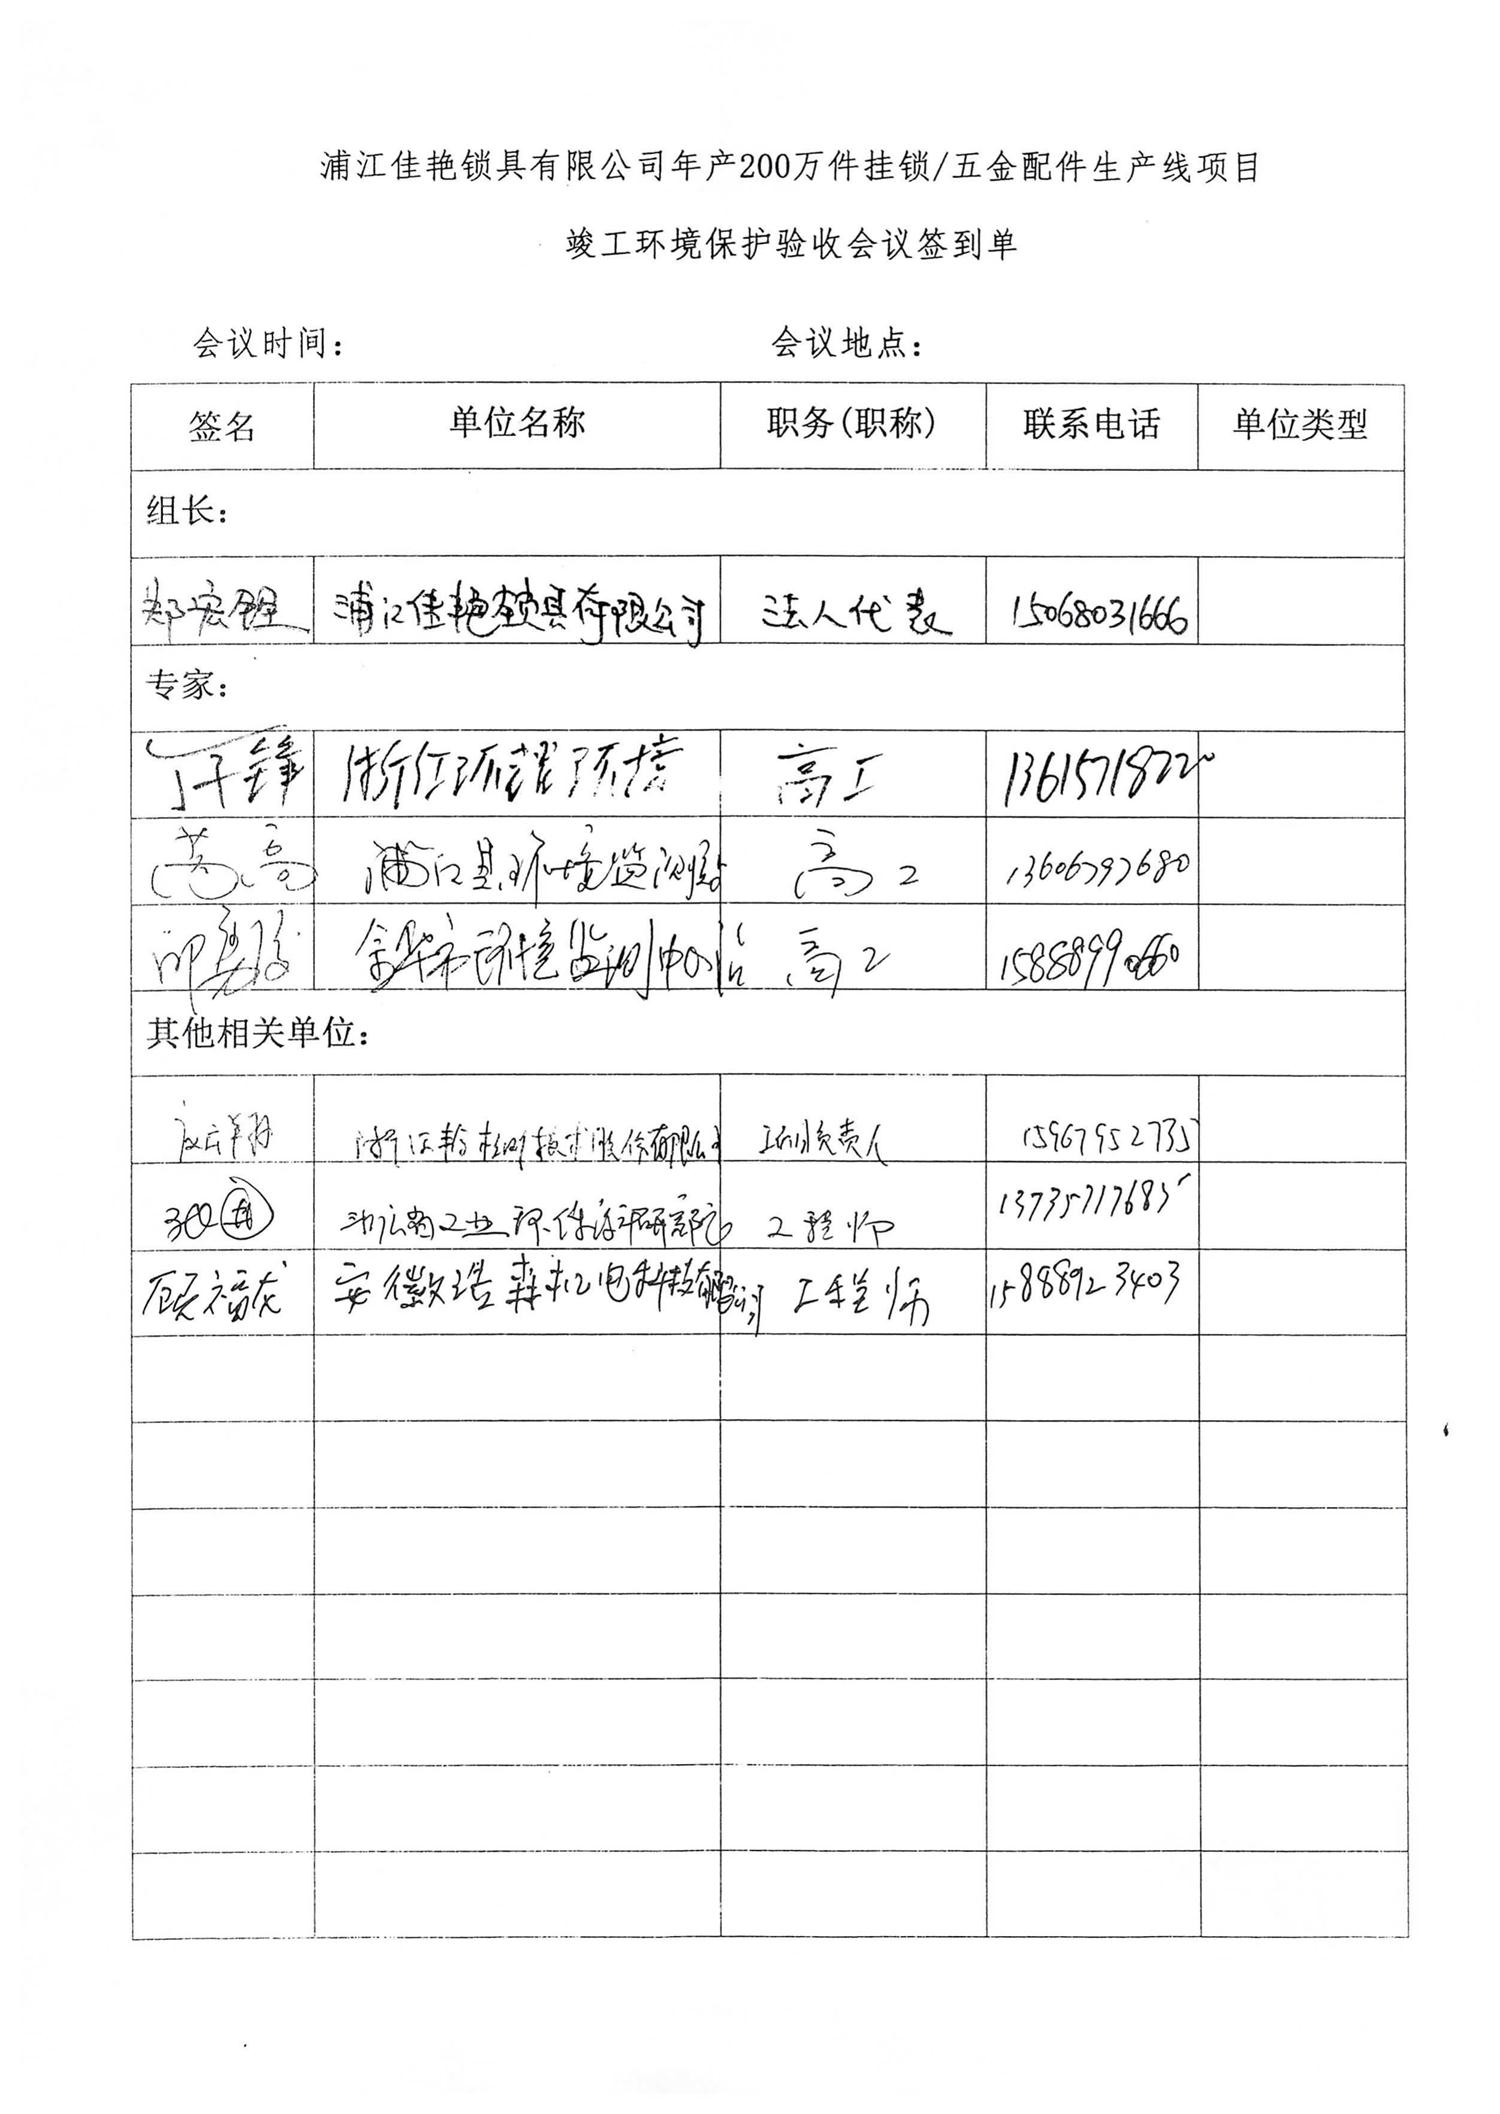 浦江佳艳锁具有限公司年产200万件挂锁/五金配件生产线项目
竣工环境保护验收会议签到单
会议时间: 会议地点:
签名 单位名称 职务(职称) 联系电话 单位类型
组长:
郑宏 浦江佳艳锁具有限公司 法人代表 15068031666
专家:
锋 浙江环耀环境 高工 13615718220
高 浦江县环境监测站 高工 13606793680
金华市环境监测中心站 高工 15888990660
其他相关单位:
检测技术股份有限公司 负责人 15967952735
浙江省工业环保设计研究院 工程师 13735717685
顾福龙 安徽浩森机电科技有限公司 工程师 15888923403